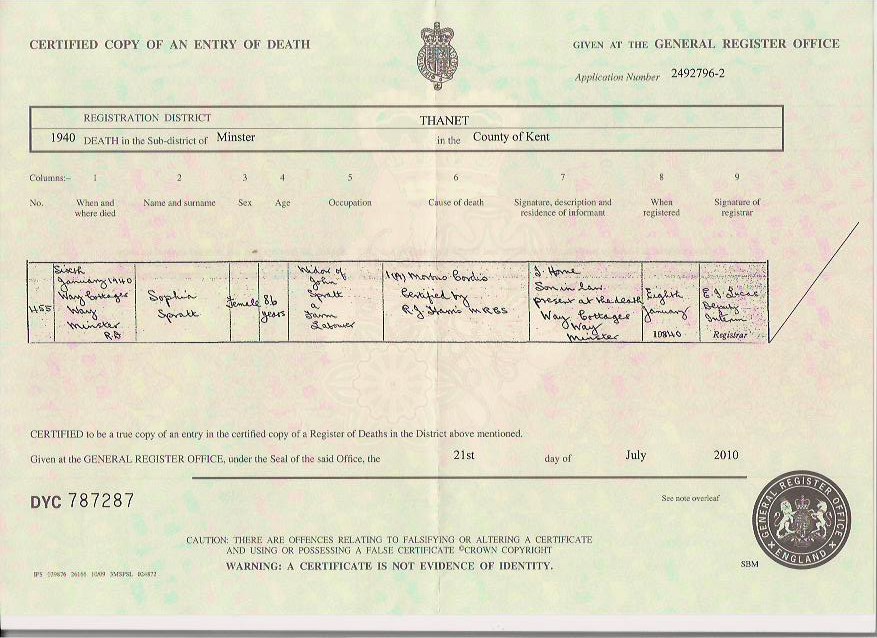 CERTIFIED COPY OF AN ENTRY OF DEATH
GIVEN AT THE GENERAL REGISTER OFFICE
Application Number 2492796-2
REGISTRATION DISTRICT THANET
1940 DEATH in the Sub-district of Minster in the County of Kent
Columns:- 1 2 3 4 5 6 7 8 9
No. When and where died Name and surname Sex Age Occupation Cause of death Signature, description and residence of informant When registered Signature of registrar
455
Sixth
January 1940
Way Cottages
Way
Minster
R.D
Sophia
Spratt
Female
86
years
Widow of
John
Spratt
a
Farm
Labourer
1(A) Morbus Cordis
Certified by
R.J. Harris MRCS
J. Horne
Son in law
present at the death
Way Cottages
Way
Minster
Eighth
January
1940
Deputy
Interim
Registrar
CERTIFIED to be a true copy of an entry in the certified copy of a Register of Deaths in the District above mentioned.
Given at the GENERAL REGISTER OFFICE, under the Seal of the said Office, the 21st day of July 2010
DYC 787287
See note overleaf
CAUTION: THERE ARE OFFENCES RELATING TO FALSIFYING OR ALTERING A CERTIFICATE
AND USING OR POSSESSING A FALSE CERTIFICATE ©CROWN COPYRIGHT
WARNING: A CERTIFICATE IS NOT EVIDENCE OF IDENTITY.
GENERAL REGISTER OFFICE
ENGLAND
SBM